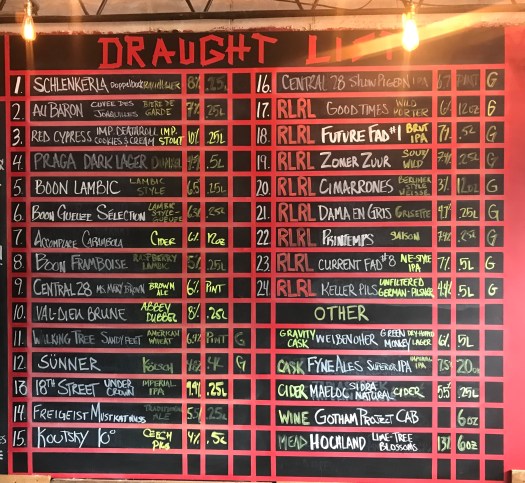 DRAUGHT LIST
1. SCHLENKERLA Doppelbock 8% .25L
2. AU BARON CUVÉE DES JONQUILLES BIERE DE GARDE 7% .25L
3. RED CYPRESS IMP. DEATHROLL COOKIES & CREAM IMP. STOUT 10% .25L
4. PRAGA DARK LAGER 4.5% .5L
5. BOON LAMBIC LAMBIC STYLE 6.5 .25L
6. BOON GUEUZE SELECTION LAMBIC STYLE - GUEUZE .25L
7. ACCOMPLICE CARAMBOLA CIDER 6% 12oz
8. BOON FRAMBOISE RASPBERRY LAMBIC 5% .25L
9. CENTRAL 28 MS. MARY BROWN BROWN ALE 6% PINT
10. VAL-DIEU BRUNE ABBEY DUBBEL 8% .25L
11. WALKING TREE SANDY FEET AMERICAN WHEAT PINT G
12. SÜNNER KÖLSCH .4L G
13 18TH STREET UNDER CROWN IMPERIAL IPA 9.9% .25L
14. FREIGEIST ALE .25L
15. KOUTSKY 10° CZECH PILS 4% .5L
16. CENTRAL 28 SLOW PIGEON IPA PINT G
17. RLRL GOOD TIMES WILD PORTER 6% 12oz G
18. RLRL FUTURE FAD #1 BRUT IPA 7% .5L G
19. RLRL ZOMER ZUUR SOUR/WILD .25L G
20. RLRL CIMARRONES BERLINER STYLE WEISSE 3% 12oz G
21. RLRL DAMA EN GRIS GRISETTE .25L G
22. RLRL PRINTEMPS SAISON .25L G
23. RLRL CURRENT FAD #8 NE-STYLE IPA 7% .5L G
24. RLRL KELLER PILS UNFILTERED GERMAN-PILSNER .5L G
OTHER
GRAVITY CASK WEIßENOHER GREEN MONKEY DRY-HOPPED LAGER 6% .5L
CASK FYNE ALES SUPERIOR IPA IMPERIAL IPA 20oz
CIDER MAELOC SIDRA NATURAL CIDER 5.5% .25L
WINE GOTHAM PROJECT CAB 6oz
MEAD HOCHLAND LIME-TREE BLOSSOMS 13% 6oz